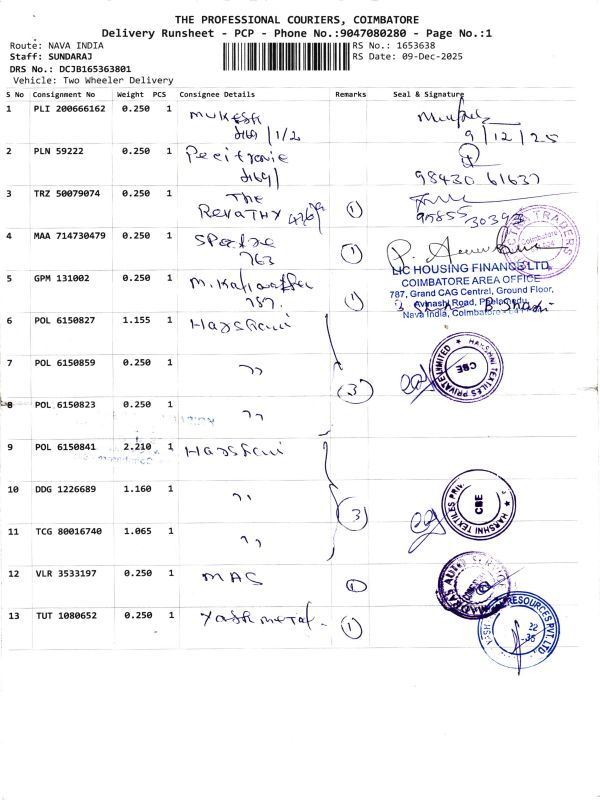 THE PROFESSIONAL COURIERS, COIMBATORE
Delivery Runsheet - PCP - Phone No.:9047080280 - Page No.:1
Route: NAVA INDIA
RS No.: 1653638
Staff: SUNDARAJ
RS Date: 09-Dec-2025
DRS No.: DCJB165363801
Vehicle: Two Wheeler Delivery
S No Consignment No Weight PCS Consignee Details Remarks Seal & Signature
1 PLI 200666162 0.250 1 MUKESH
1/2 9/12/25
2 PLN 59222 0.250 1
98430 61637
3 TRZ 50079074 0.250 1 The
Revathy 1
TRADERS
Coimbatore
4 MAA 714730479 0.250 1
763 1
LIC HOUSING FINANCE LTD
COIMBATORE AREA OFFICE
5 GPM 131002 0.250 1
787. 1
787, Grand CAG Central, Ground Floor,
Avinashi Road, Peelamedu,
Nava India, Coimbatore
6 POL 6150827 1.155 1 Harshini
7 POL 6150859 0.250 1 ,, 3
HARSHNI TEXTILES PRIVATE LIMITED
CBE
8 POL 6150823 0.250 1 ,,
9 POL 6150841 2.210 1 Harshini
10 DDG 1226689 1.160 1 ,, 3
HARSHNI TEXTILES PRIV
CBE
11 TCG 80016740 1.065 1 ,,
12 VLR 3533197 0.250 1 MAS 1
MADRAS AUTO SERVICE
13 TUT 1080652 0.250 1 Yash metal. 1
RESOURCES PVT. LTD.